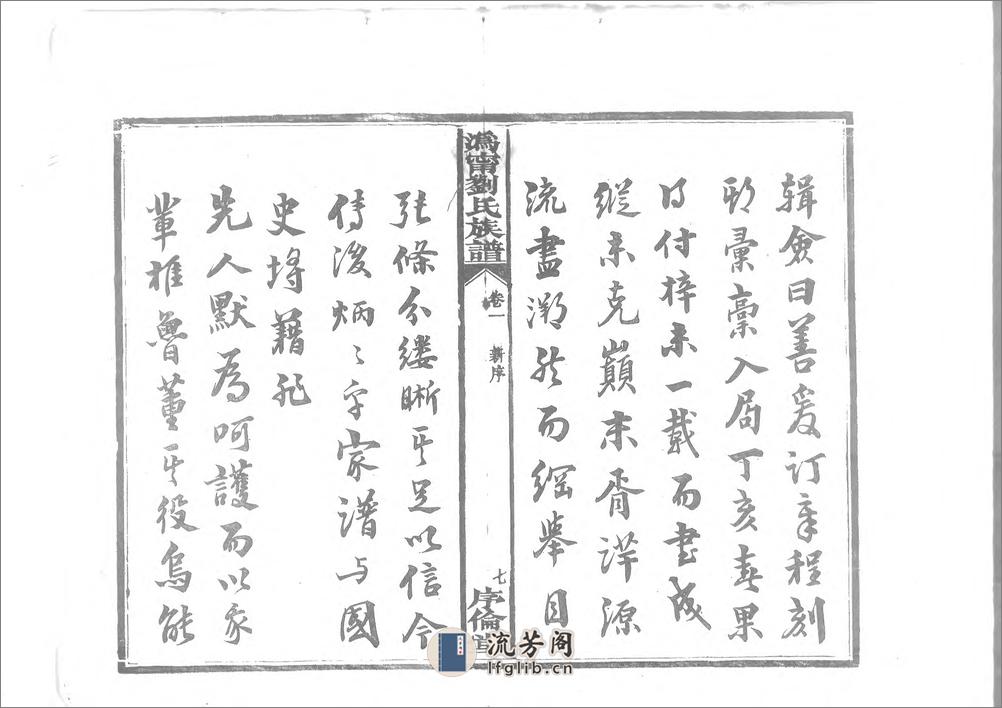 辑僉曰善爰订章程刻
期彙稾入局丁亥春果
付梓未一載而书成
縱未克巔末胥详源
流盡溯然而綱舉目
溈甯劉氏族譜
卷一
新序
七
序倫堂
张條分缕晰其足以信今
传後炳炳乎家譜与國
史埒藉非
先人默為呵護而以家
輩椎魯董其役烏能
流芳阁
lfglib.cn